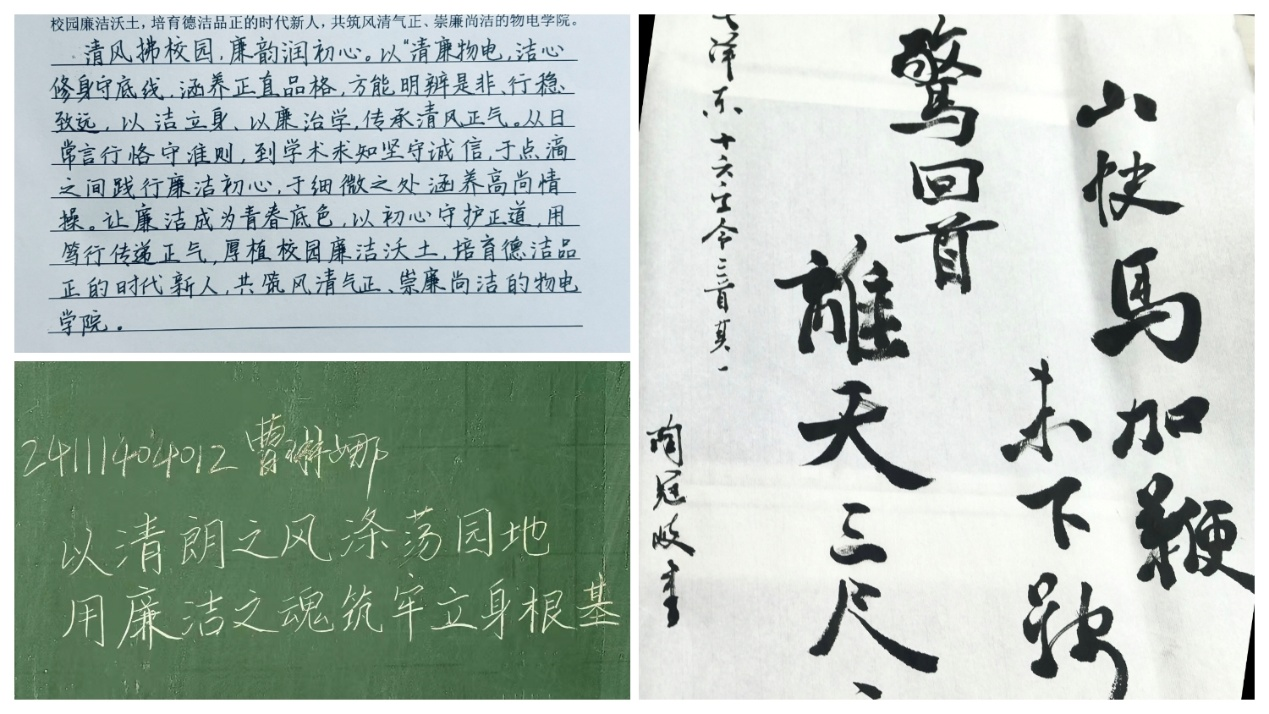 校园廉洁沃土，培育德洁品正的时代新人，共筑风清气正、崇廉尚洁的物电学院。
清风拂校园，廉韵润初心。以“清廉物电，洁心
修身守底线，涵养正直品格，方能明辨是非、行稳
致远，以洁立身、以廉治学，传承清风正气。从日
常言行恪守准则，到学术求知坚守诚信，于点滴
之间践行廉洁初心，于细微之处涵养高尚情
操。让廉洁成为青春底色，以初心守护正道，用
笃行传递正气，厚植校园廉洁沃土，培育德洁品
正的时代新人，共筑风清气正、崇廉尚洁的物电
学院。
24111404012 曹琳娜
以清朗之风涤荡园地
用廉洁之魂筑牢立身根基
山快馬加鞭
未下鞍
驚回首
離天三尺
泽东十六字令三首其一
陶冠岐書